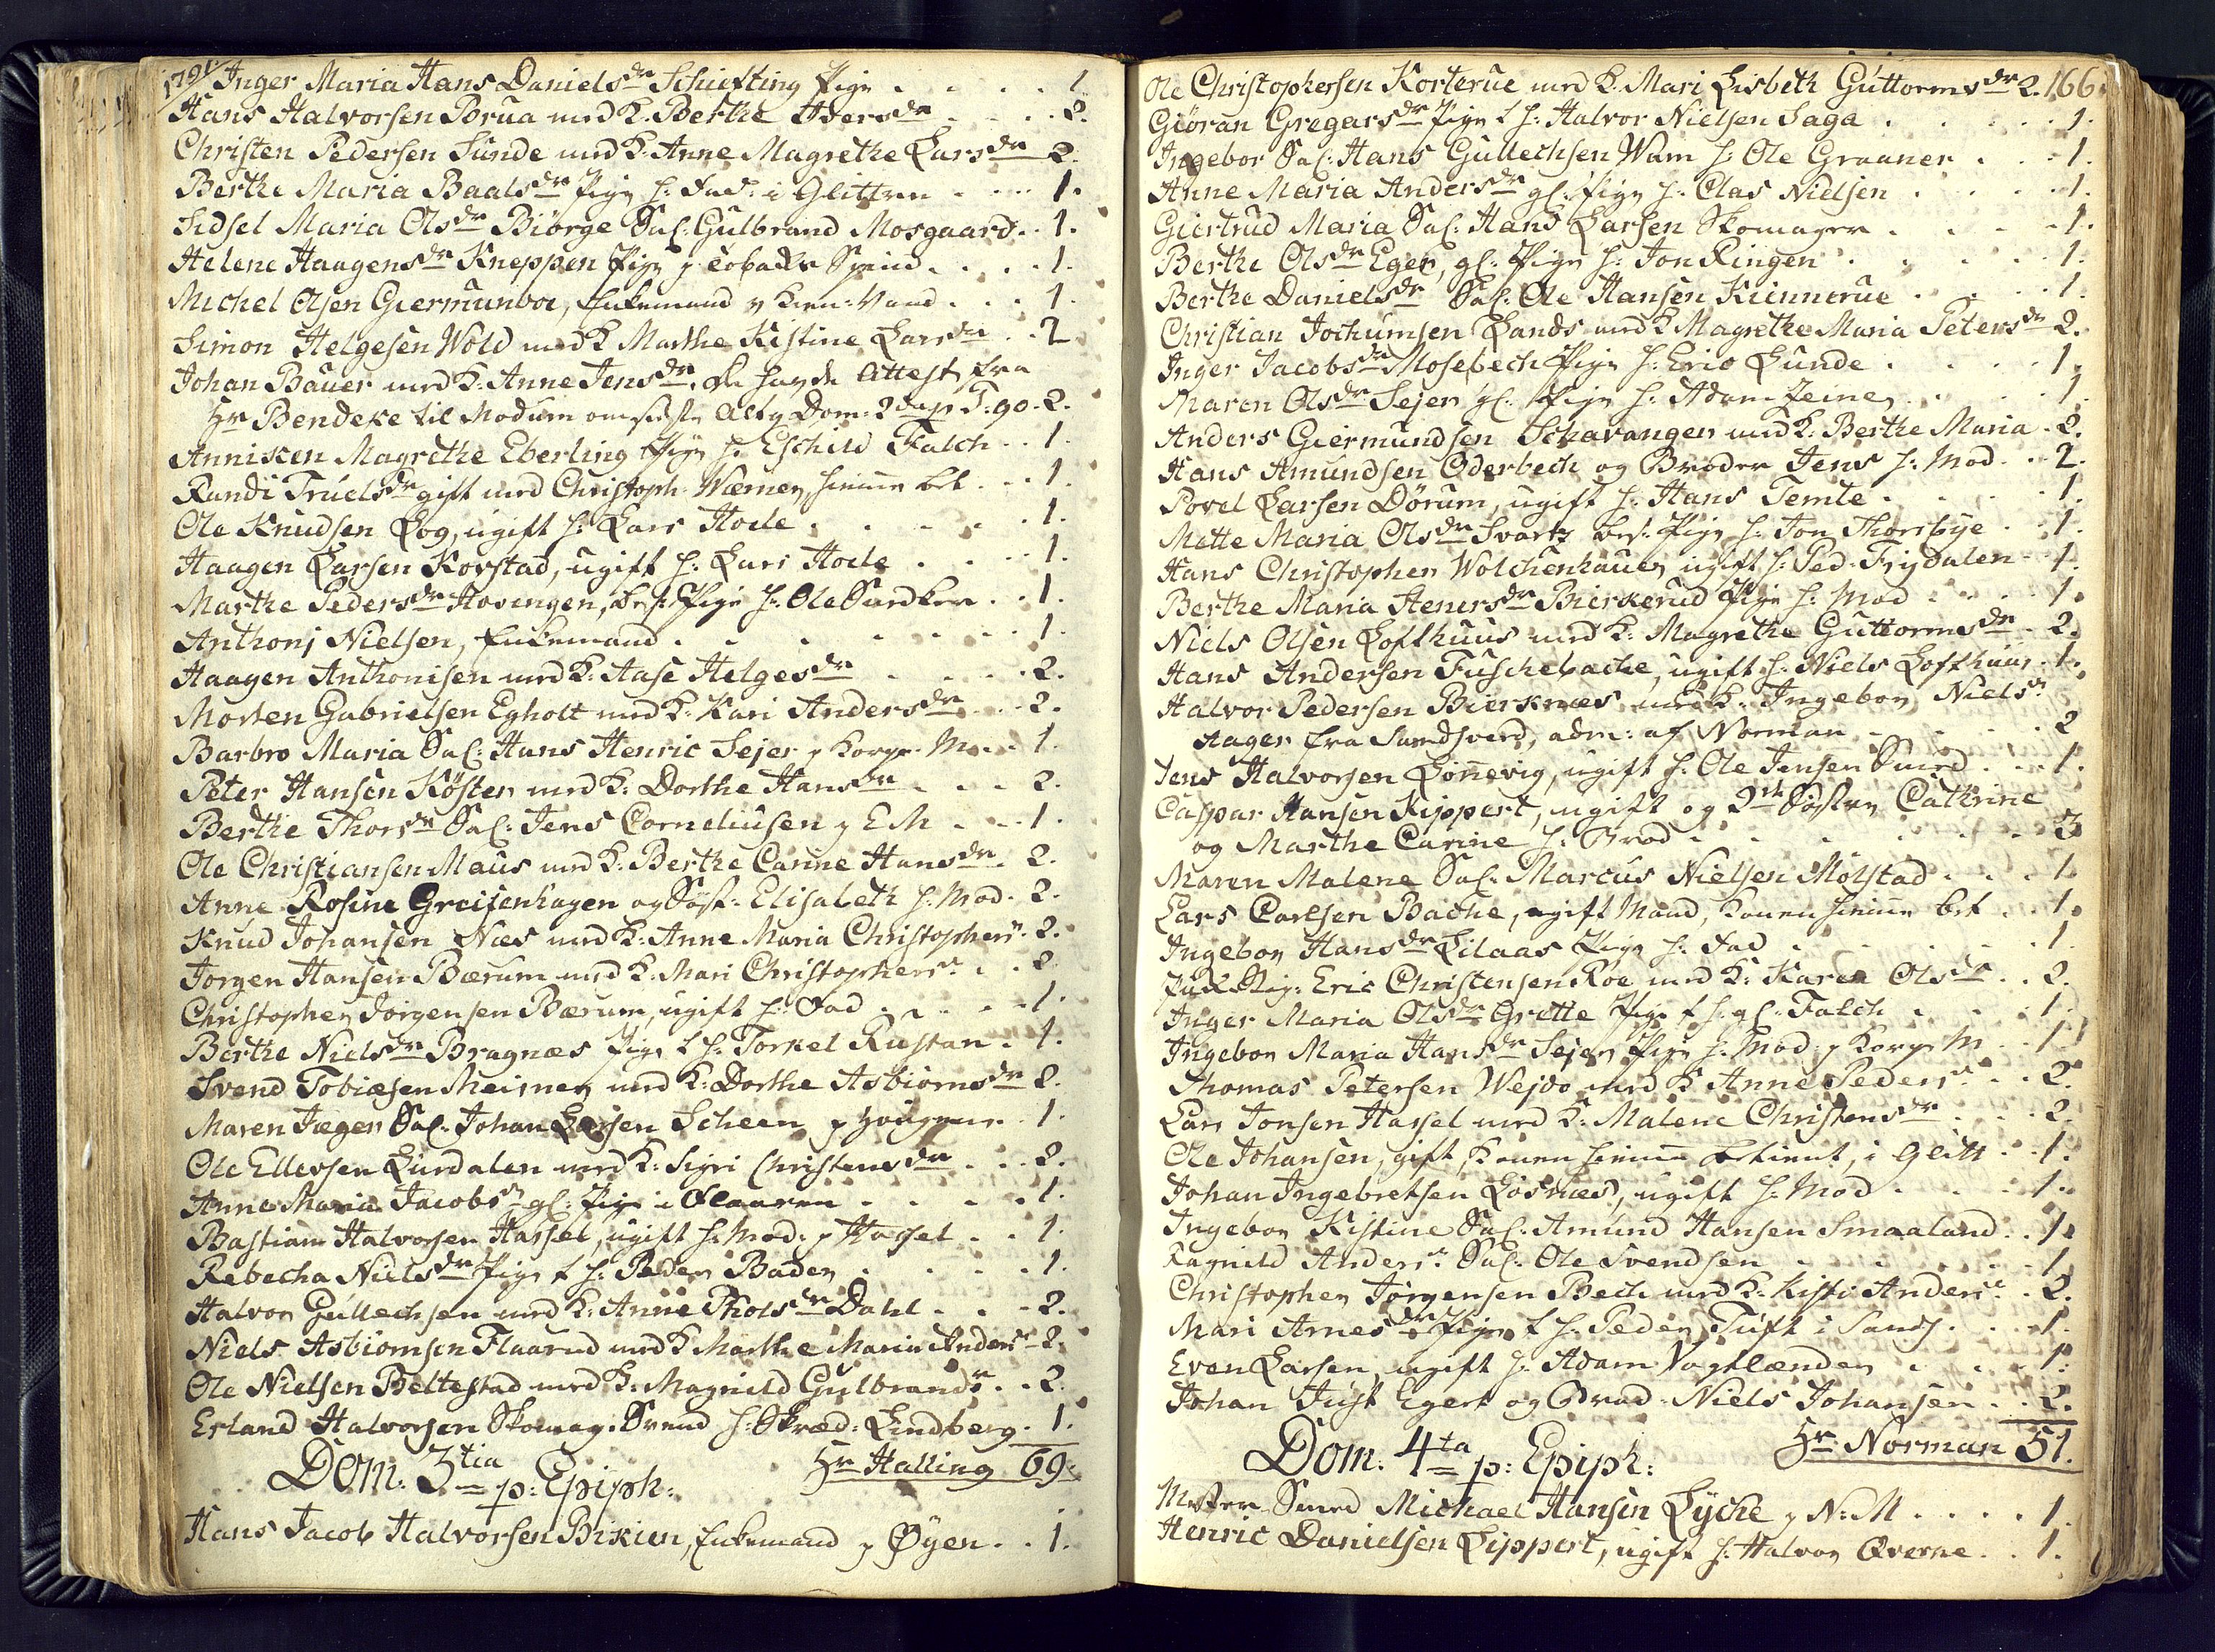 1791. Inger Maria Hans Danielsdr Schiefting Pige . . . . 1.
Hans Halvorsen Brua med K. Berthe Adersdr . . . 2.
Christen Pedersen Sunde med K. Anne Magrethe Larsdr 2.
Berthe Maria Baalsdr Pige h: Fad: i Glittre . . . . 1.
Sidsel Maria Olsdr Biørge Sal: Gulbrand Mosgaard . . 1.
Helene Haagensdr Kneppen Pige p Tobaks Spind . . . . 1.
Michel Olsen Giermunboe, Enkemand . . . 1.
Simon Helgesen Wold med K Marthe Kistine Larsdr . . 2
Johan Bauer med K: Anne Jensdr, de havde Attest fra
Hr Bendeke til Modum om sidste Altg Dom: 2 Adv. T: 90. 2.
Anniken Magrethe Eberling Pige h: Eschild Falch . . 1.
Randi Truelsdr gift med Christoph Wærner, hiemme bet . . . 1.
Ole Knudsen Log, ugift h: Lars Hoele . . . . . 1.
Haagen Larsen Korstad, ugift h: Lars Hoele . . . 1.
Marthe Pedersdr Hovengen, bes: Pige h: Ole Snedker . . 1.
Anthonj Nielsen, Enkemand . . . . . . . 1.
Haagen Anthonisen med K: Aase Helgesdr . . . . 2.
Morten Gabrielsen Egholt med K: Kari Andersdr . . . 2.
Barbro Maria Sal: Hans Henric Sejer p Korpe M . . 1.
Peter Hansen Köster med K: Dorthe Hansdr . . . 2.
Berthe Thorsdr Sal: Jens Corneliusen p E M . . . 1.
Ole Christiansen Maus med K: Berthe Carine Hansdr . 2.
Anne Rosine Greisenhagen og Søst: Elisabeth h: Mod. 2.
Knud Johansen Næs med K: Anne Maria Christophersdr. 2.
Jørgen Hansen Bærum med K: Mari Christophersdr . . 2
Christopher Jørgensen Bærum, ugift h: Fad . . . . 1.
Berthe Nielsdr Bragnæs Pige t h: Torkel Rustan . 1.
Svend Tobiæsen Meisner med K: Dorthe Asbiørnsdr 2.
Maren Jæger Sal: Johan Larsen Scheen p Hougene . 1.
Ole Ellevsen Lurdalen med K: Sigri Christensdr . . . 2.
Anne Maria Jacobsdr gl: Pige i Olaaren . . . . . 1.
Bastian Halvorsen Hassel, ugift h: Mod: p Hassel . . 1.
Rebecha Nielsdr Pige t h: Peder Bader . . . . 1.
Halvor Gullechsen med K: Anne Tholsdr Dahl . . . 2.
Niels Asbiørnsen Flaarud med K Marthe Maria Andersdr 2.
Ole Nielsen Beltestad med K: Magnild Gulbrandsdr . . 2.
Erland Halvorsen Skomag: Svend h: Skræd: Lindberg . 1.
Hr Halling 69.
Dom: 3tia p: Epiph:
Hans Jacob Halvorsen Bikien, Enkemand p Øyen . . 1.
Ole Christophersen Korterue med K: Mari Lisbeth Guttormsdr 2. 166.
Giøran Gregarsdr Pige t h: Halvor Nielsen Saga . . . . 1.
Ingebor Sal: Hans Gullechsen Wam h: Ole Graaner . . . 1.
Anne Maria Andersdr gl: Pige h: Clas Nielsen . . . . 1.
Giertrud Maria Sal: Hans Larsen Skomager . . . . 1.
Berthe Olsdr Eger, gl: Pige h: Jon Ringen . . . . . 1.
Berthe Danielsdr Sal: Ole Hansen Kiennerue . . . . 1.
Christian Jochumsen Lands med K Magrethe Maria Petersdr 2.
Inger Jacobsdr Mosebech Pige h: Eric Lunde . . . . 1.
Maren Olsdr Sejer gl: Pige h: Adam Zeiner . . . . 1
Anders Giermundsen Schavanger med K: Berthe Maria . 2.
Hans Amundsen Oderbech og Broder Jens h: Mod . . 2.
Povel Larsen Dørum, ugift h: Hans Temte . . . . 1.
Mette Maria Olsdr Svartz bes: Pige h: Jon Thorsbye . . 1.
Hans Christopher Wolckenhauer, ugift h: Ped: Frydalen . . 1.
Berthe Maria Henersdr Bierkerud Pige h: Mod . . . . 1.
Niels Olsen Lofthuus med K: Magrethe Guttormsdr . 2.
Hans Andersen Fuschebache, ugift h: Niels Lofthuus . 1.
Halvor Pedersen Bierknæs med K: Ingebor Nielsdr
Hager fra Sandsverd, adm: af Norman . . . . . 2
Jens Halvorsen Lønnevig, ugift h: Ole Jensen Smed . . . 1.
Caspar Hansen Kippert, ugift og 2de Søstre Cathrine
og Marthe Carine h: Brod . . . . . . . . 3
Maren Malene Sal: Marcus Nielsen Mølstad . . . 1
Lars Carlsen Bache, ugift Mand, Konen hiemme bet . . 1.
Ingebor Hansdr Lilaas Pige h: Fad . . . . . . 1.
Eric Christensen Roe med K: Karen Olsdr . . 2.
Inger Maria Olsdr Grette Pige t h: gl: Falch . . . . 1.
Ingebor Maria Hansdr Sejer Pige h: Mod: p Korpe M . . 1.
Thomas Petersen Wejdo med K Anne Pedersdr . . 2.
Lars Jonsen Hassel med K: Malene Christensdr . . . 2.
Ole Johansen, gift, Konen hiemme betient, i Glitt . . 1.
Johan Ingebretsen Løsnæs, ugift h: Mod . . . . 1.
Ingebor Kistine Sal: Amund Hansen Smaaland . . 1.
Ragnild Andersdr Sal: Ole Svendsen . . . . . 1.
Christopher Jørgensen Bech med K: Kisti Andersdr . . 2.
Mari Arnesdr Pige t h: Peder Tuft i Sands . . . 1.
Even Larsen, ugift h: Adam Vogtlænder . . . . 1.
Johan Just Egert og Brod: Niels Johansen . . 2.
Hr Norman 51.
Dom: 4ta p: Epiph:
Mester Smed Michael Hansen Lyche p N: M . . . . 1.
Henric Danielsen Lippert, ugift h: Halvor Øverne . . 1.